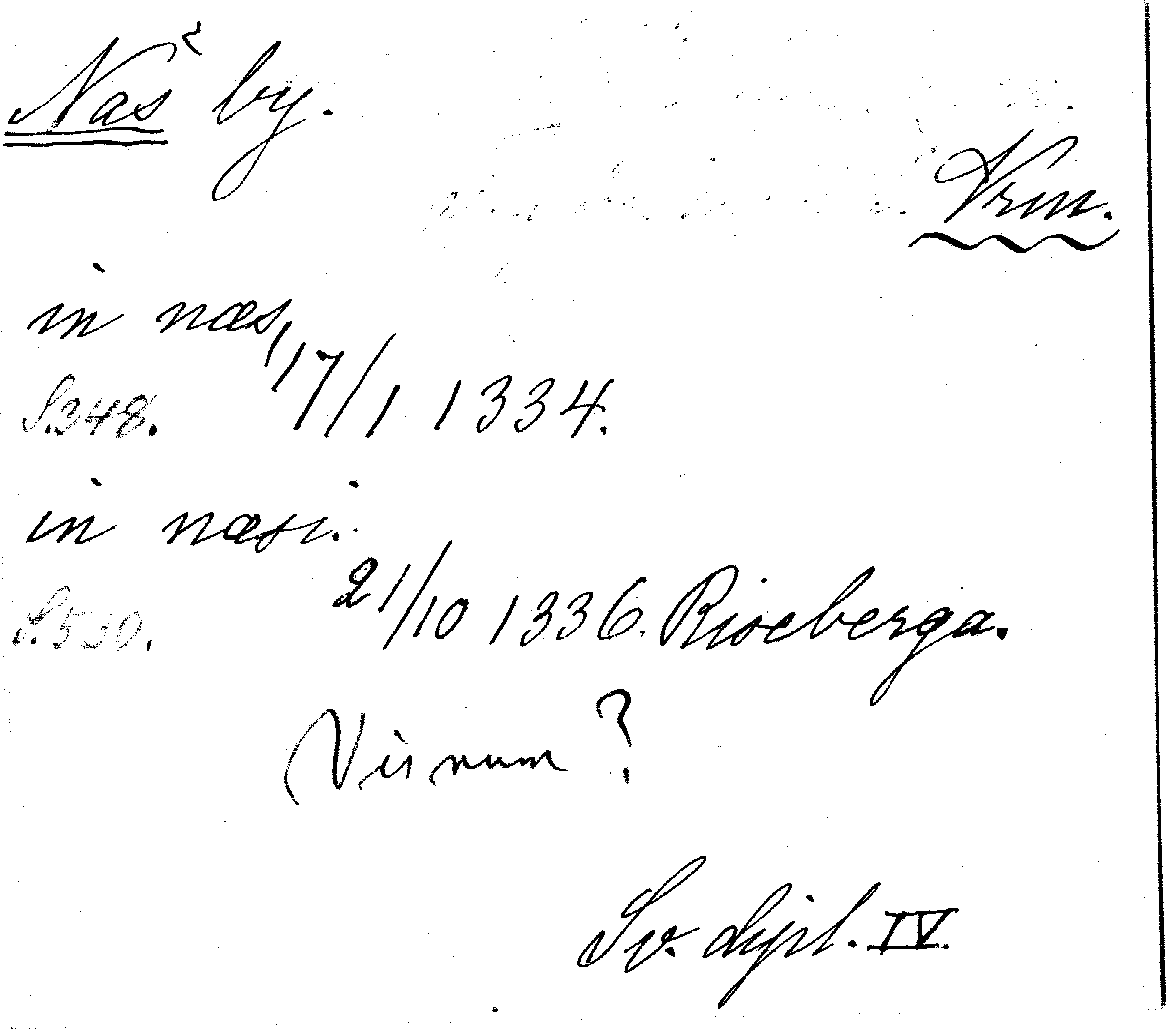 Nas by.
Vrm.
in næs,
S. 348. 17/1 1334.
in næsi.
S. 530. 21/10 1336. Riseberga.
Visnum ?
Sv. dipl. IV.